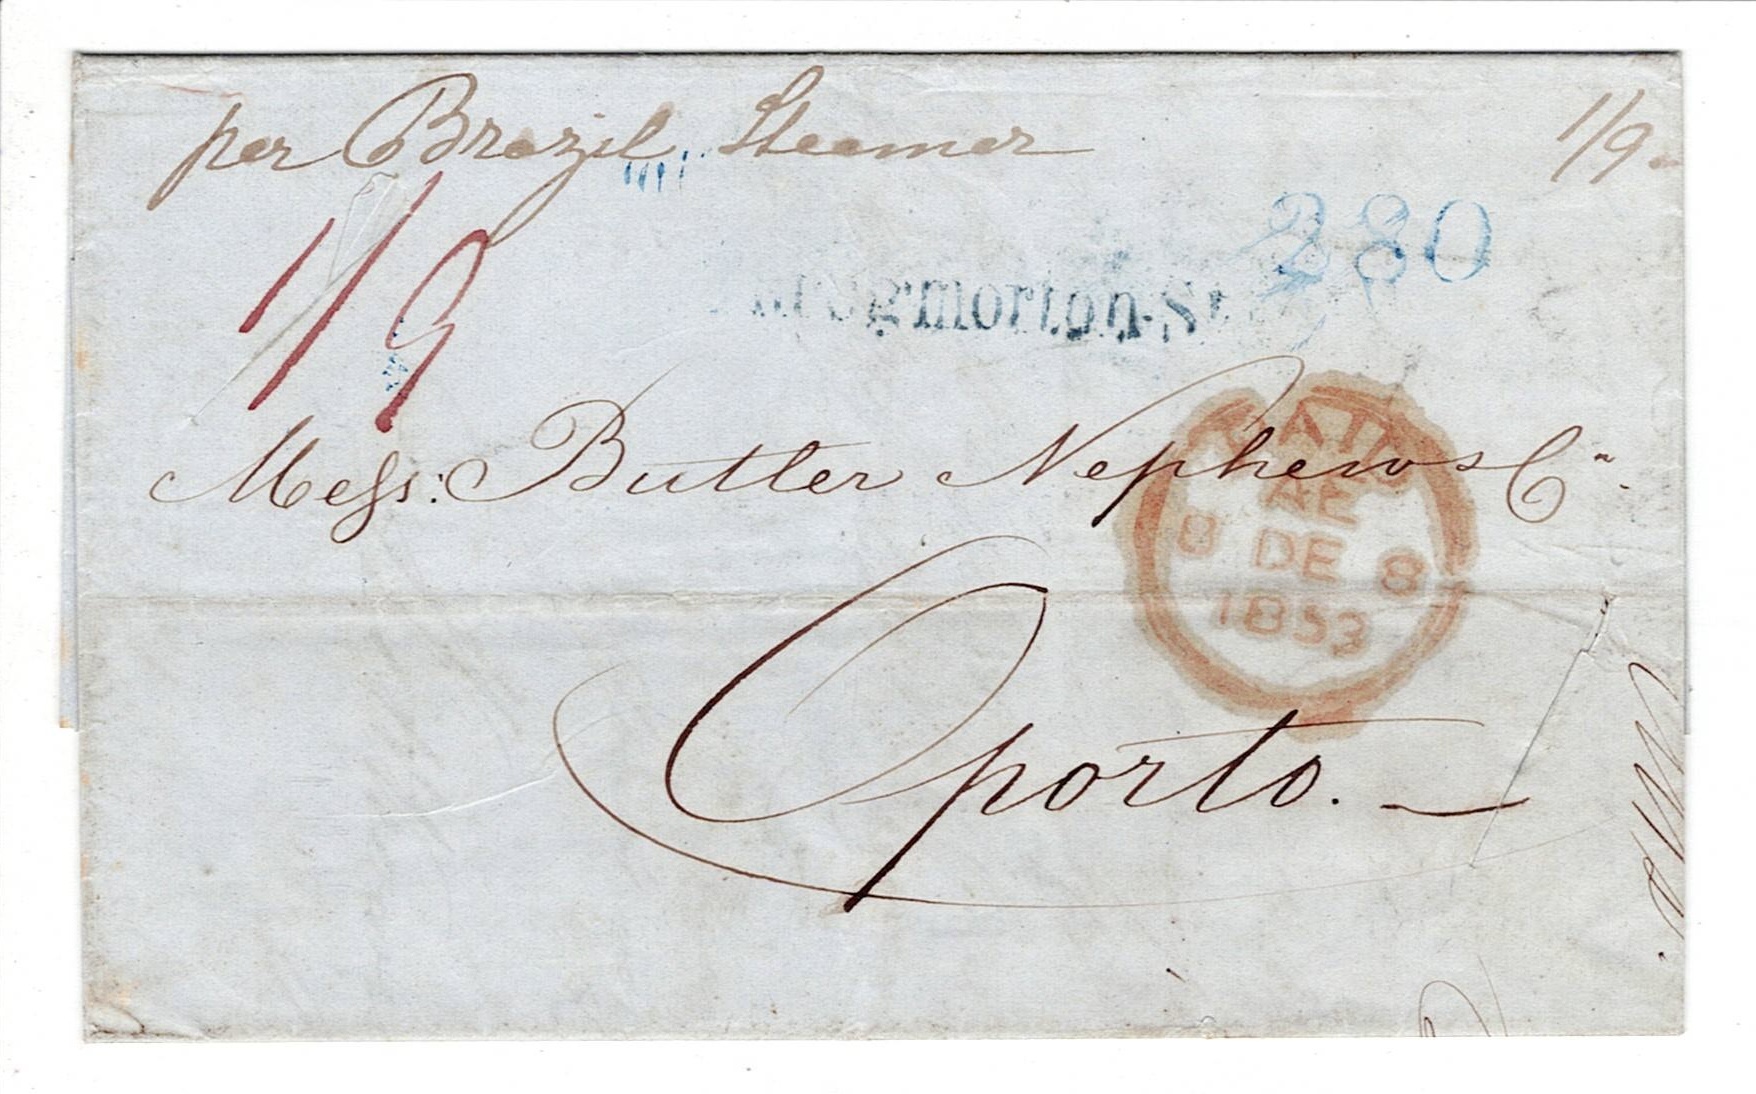 per Brazil Steamer
1/9
1/9
280
rogmorton-St
Mefs: Butler Nephews Co.
PAID
AE
8 DE 8
1853
Oporto.